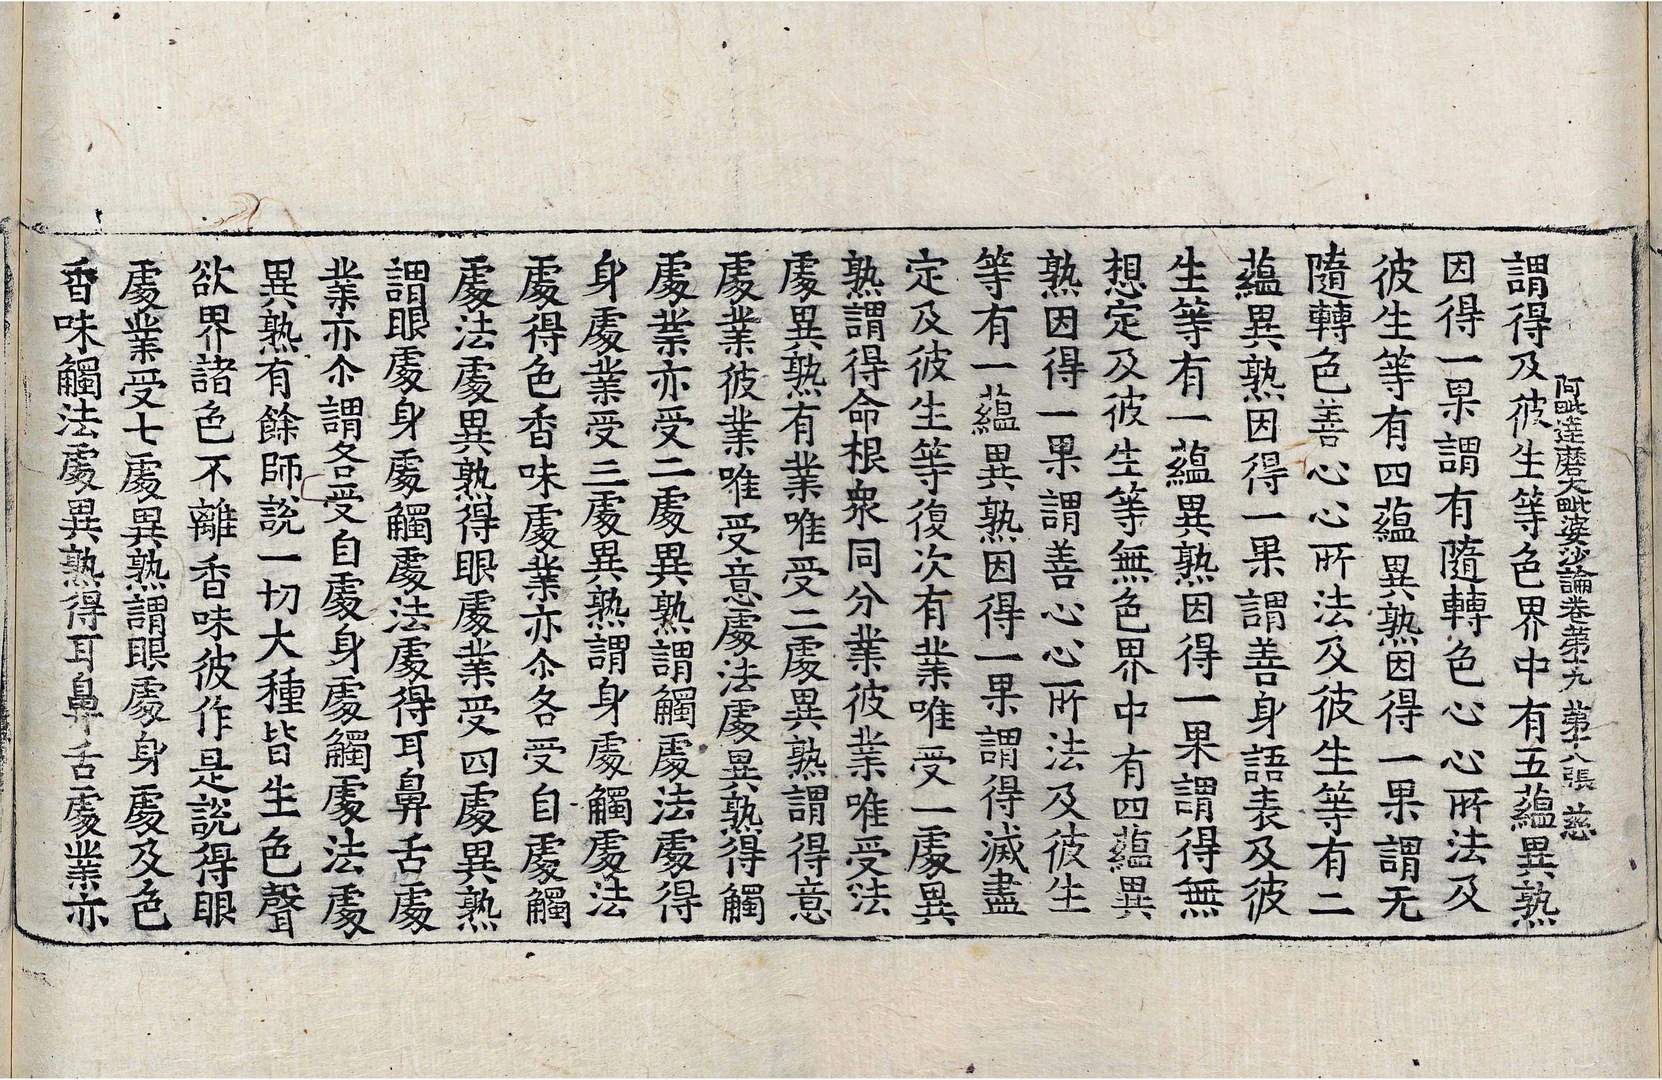 阿毗達磨大毗婆沙論卷第十九　第十八張　慈
謂得及彼生等色界中有五蘊異熟
因得一果謂有隨轉色心心所法及
彼生等有四蘊異熟因得一果謂无
隨轉色善心心所法及彼生等有二
蘊異熟因得一果謂善身語表及彼
生等有一蘊異熟因得一果謂得無
想定及彼生等無色界中有四蘊異
熟因得一果謂善心心所法及彼生
等有一蘊異熟因得一果謂得滅盡
定及彼生等復次有業唯受一處異
熟謂得命根衆同分業彼業唯受法
處異熟有業唯受二處異熟謂得意
處業彼業唯受意處法處異熟得觸
處業亦受二處異熟謂觸處法處得
身處業受三處異熟謂身處觸處法
處得色香味處業亦尒各受自處觸
處法處異熟得眼處業受四處異熟
謂眼處身處觸處法處得耳鼻舌處
業亦尒謂各受自處身處觸處法處
異熟有餘師說一切大種皆生色聲
欲界諸色不離香味彼作是說得眼
處業受七處異熟謂眼處身處及色
香味觸法處異熟得耳鼻舌處業亦